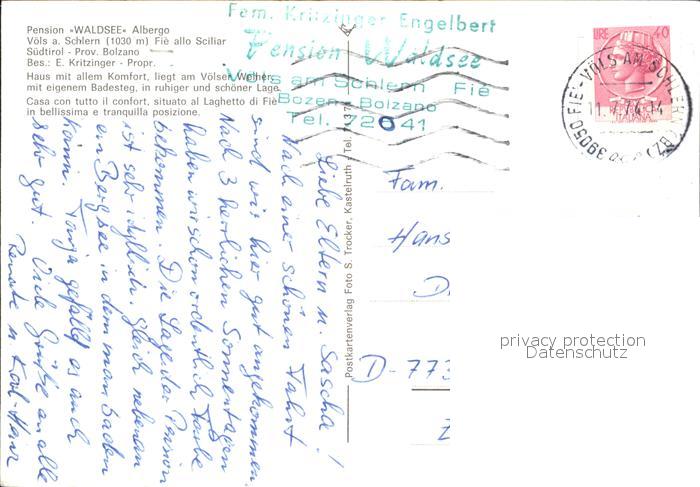 Pension »WALDSEE« Albergo
Völs a. Schlern (1030 m) Fiè allo Sciliar
Südtirol - Prov. Bolzano
Bes.: E. Kritzinger - Propr.
Haus mit allem Komfort, liegt am Völser Weiher
mit eigenem Badesteg, in ruhiger und schöner Lage.
Casa con tutto il confort, situato al Laghetto di Fiè
in bellissima e tranquilla posizione.
Fam. Kritzinger Engelbert
Pension Waldsee
Völs am Schlern Fiè
Bozen - Bolzano
Tel. 72041
LIRE 40
ITALIANA
39050 FIE'-VÖLS AM SCHLERN (BZ)
Liebe Eltern u. Sascha!
Nach einer schönen Fahrt
sind wir hier gut angekommen.
Nach 3 herrlichen Sonnentagen
haben wir schon ordentlich Farbe
bekommen. Die Lage der Pension
ist sehr idyllisch. Gleich nebenan
ein Bergsee in dem man baden
kann. Tanja gefällt es auch
sehr gut. Viele Grüße an alle
Renate u Karl-Heinz
Postkartenverlag Foto S. Trocker, Kastelruth
Fam.
Hans
D
D-773
privacy protection
Datenschutz